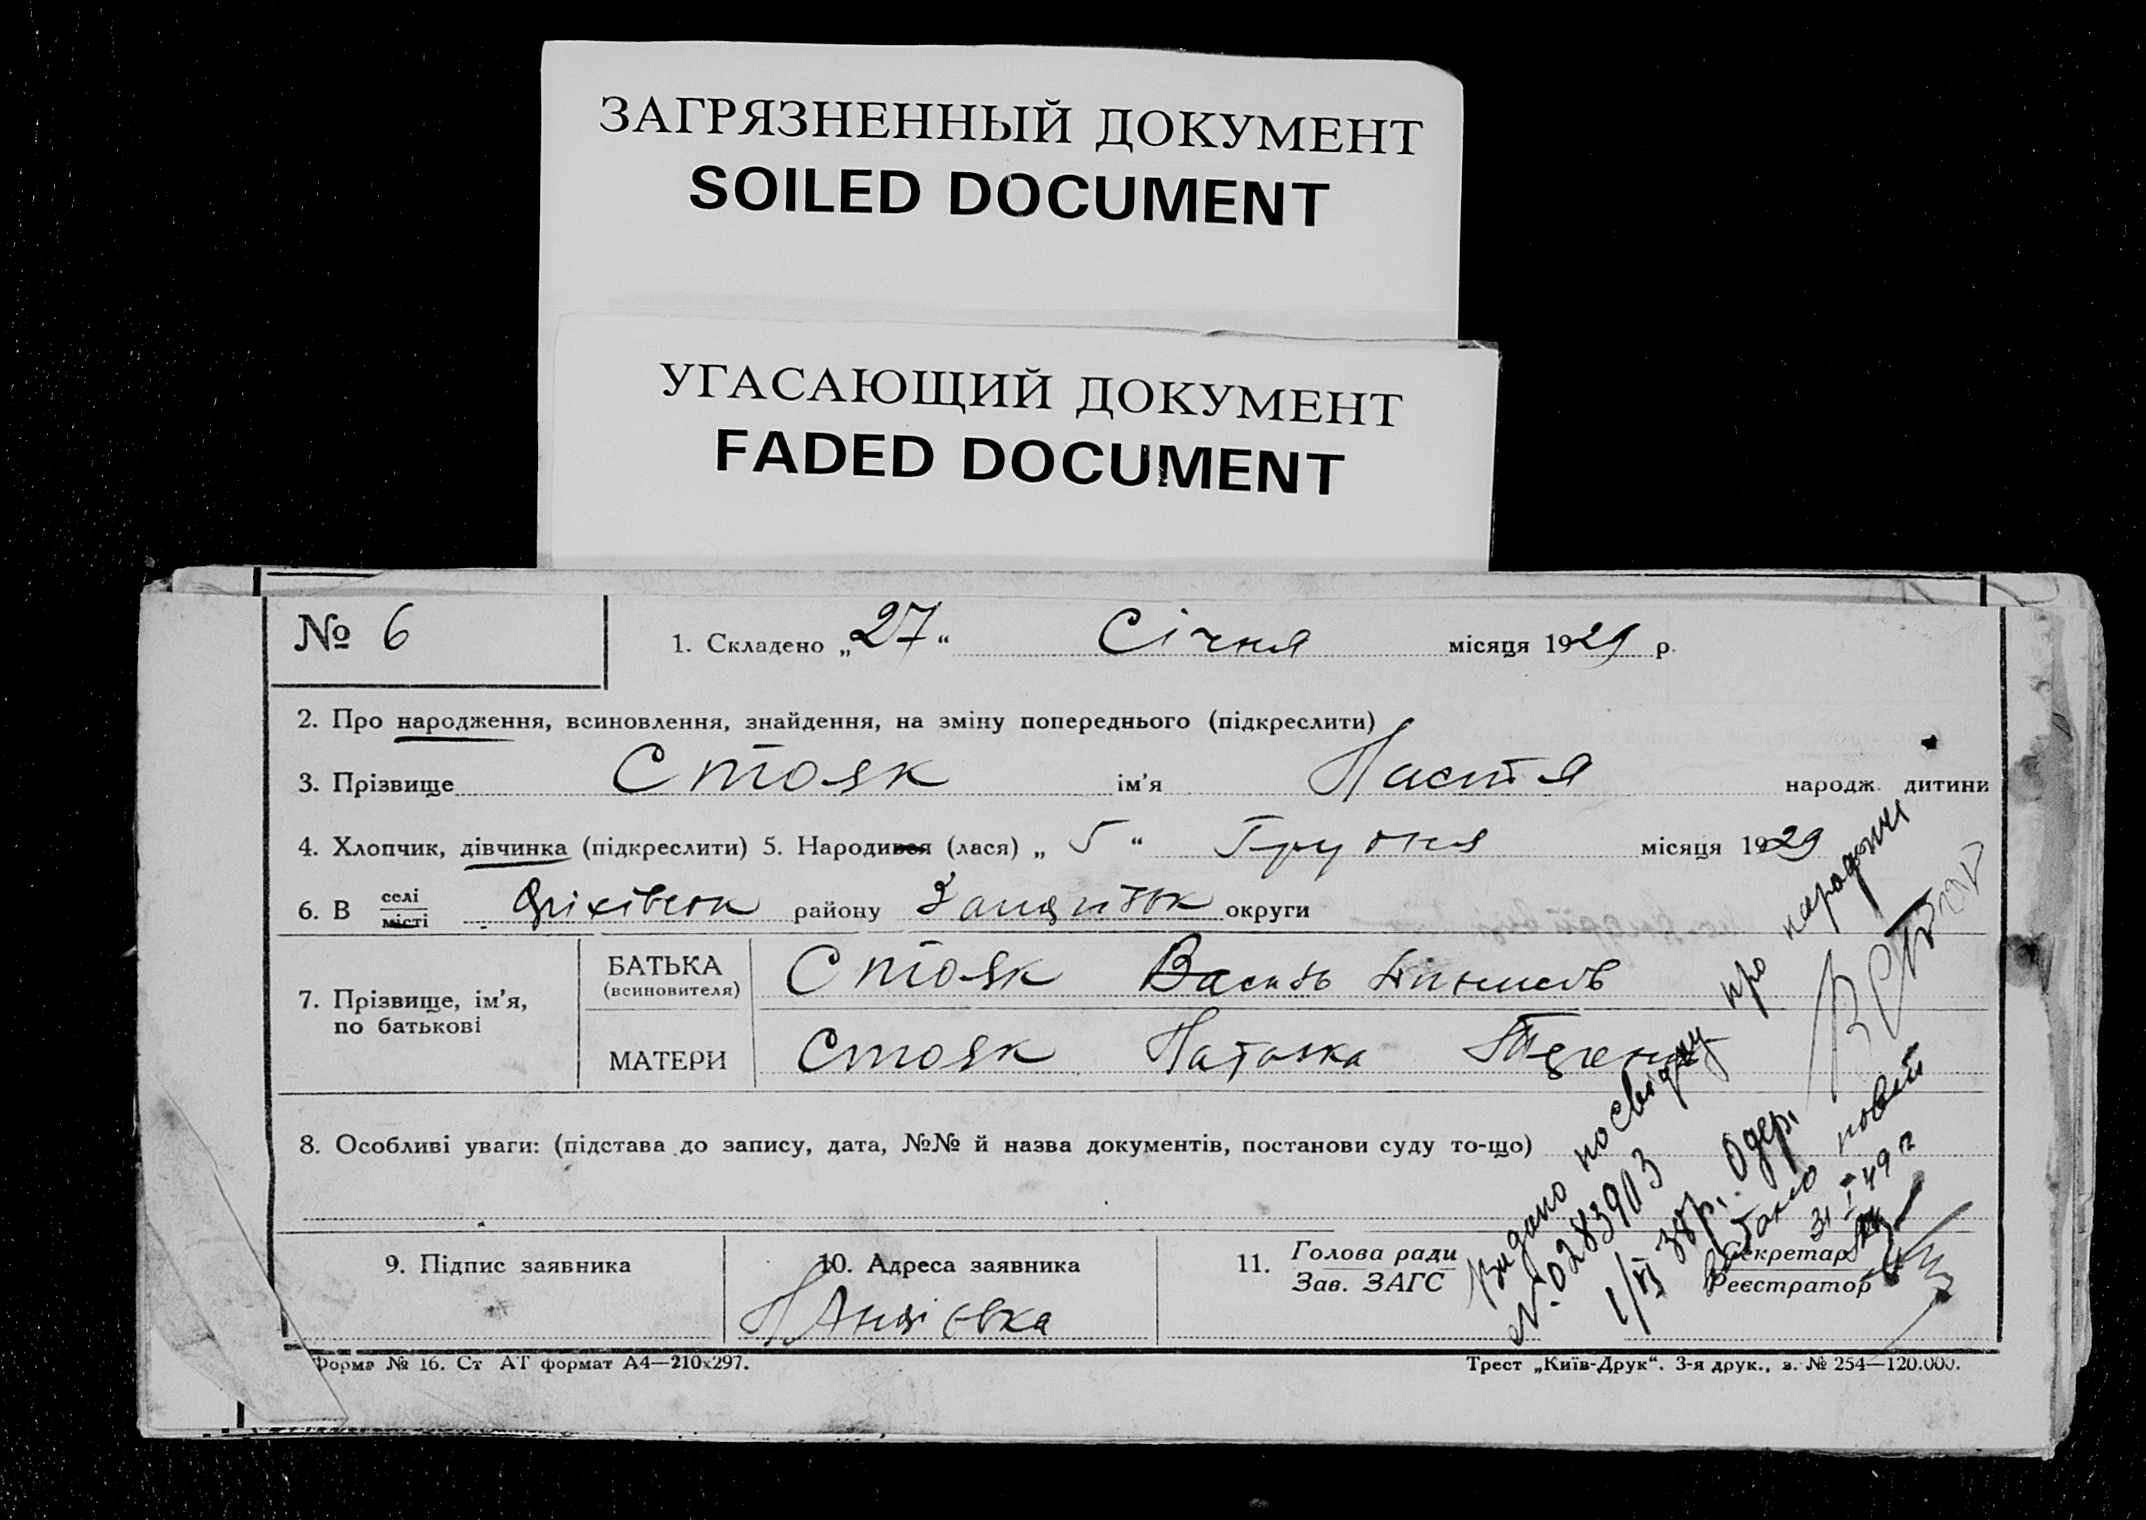 ЗАГРЯЗНЕННЫЙ ДОКУМЕНТ
SOILED DOCUMENT
УГАСАЮЩИЙ ДОКУМЕНТ
FADED DOCUMENT
№ 6
1. Складено „27“ Січня місяця 1929 р.
2. Про народження, всиновлення, знайдення, на зміну попереднього (підкреслити)
3. Прізвище Стояк ім’я Настя народж. дитини
4. Хлопчик, дівчинка (підкреслити) 5. Народився (лася) „5“ Грудня місяця 1929
6. В селі місті району округи
7. Прізвище, ім’я, по батькові
БАТЬКА (всиновителя) Стояк Василь
МАТЕРИ Стояк Наталка
8. Особливі уваги: (підстава до запису, дата, №№ й назва документів, постанови суду то-що)
Видано посвідку про народжені
№ 0283903
1/VI 38р. Одер.
новий
31 I 49 г
9. Підпис заявника
10. Адреса заявника
11. Голова ради
Зав. ЗАГС
Секретар
Реєстратор
Форма № 16. Ст АТ формат А4—210х297.
Трест „Київ-Друк“. 3-я друк., з. № 254—120.000.